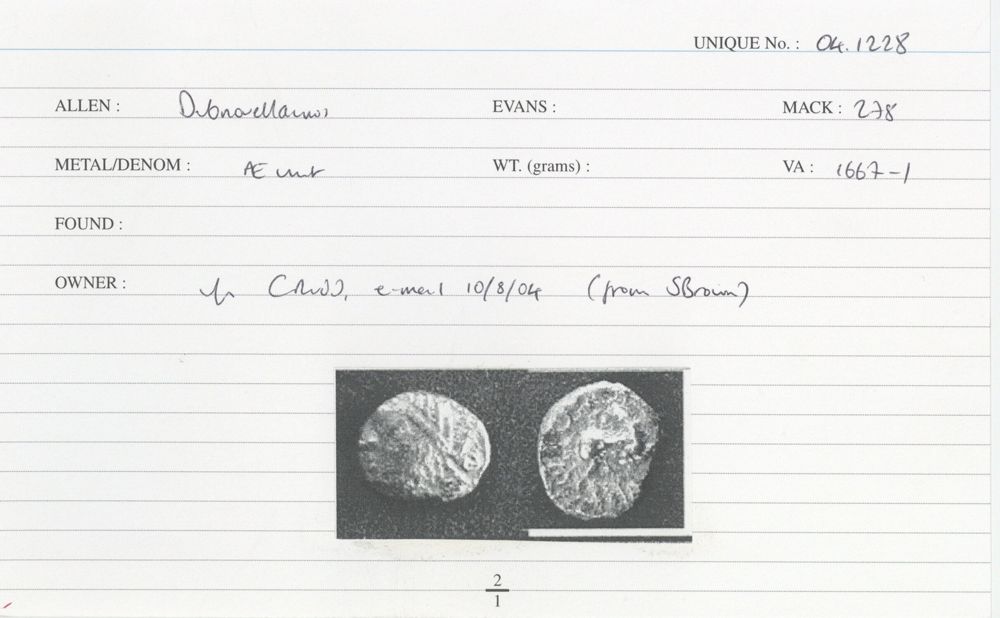 UNIQUE No. : 04.1228
ALLEN : Dubnovellaunos EVANS : MACK : 278
METAL/DENOM : Æ unit WT. (grams) : VA : 1667-1
FOUND :
OWNER : e-mail 10/8/04 (from SBrown)
2
1